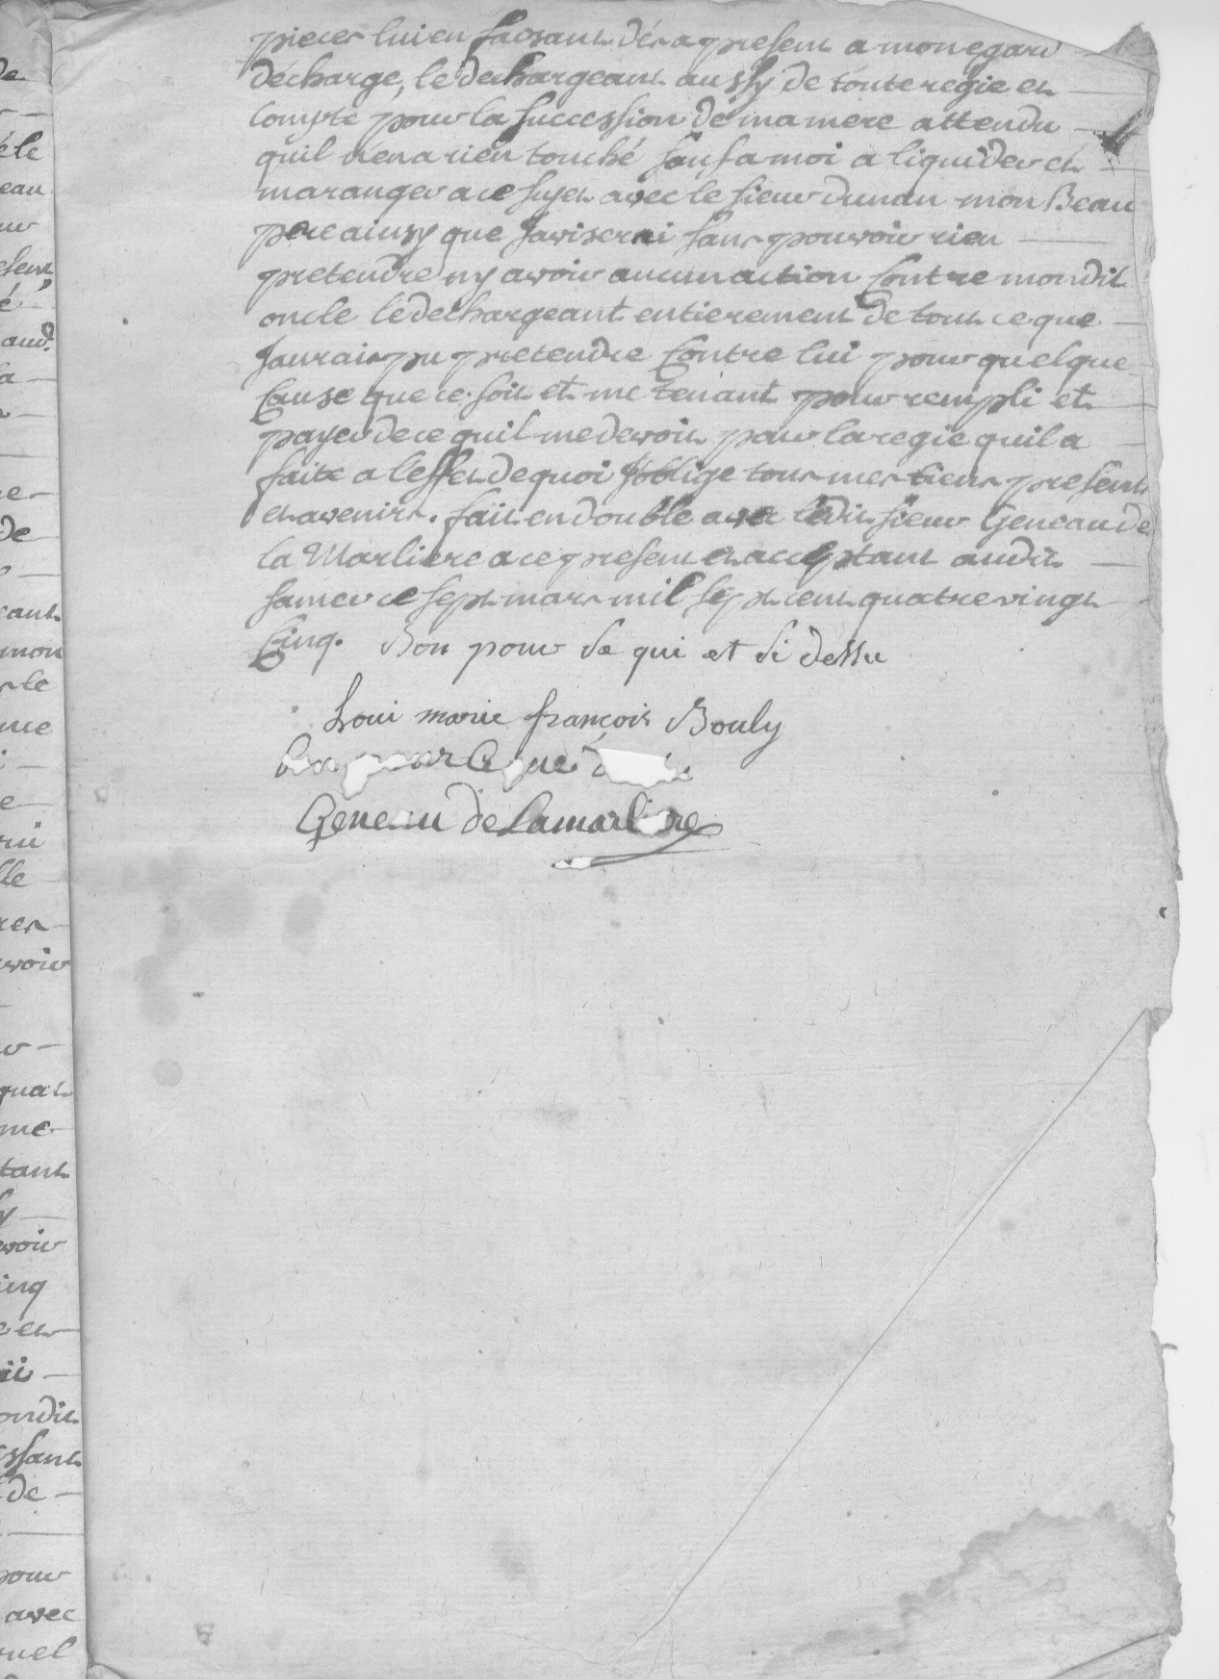 pieces lui en faisant dés a present a mon egard
décharge, le dechargeant aussy de toute regie et
compte pour la succession de ma mere attendu
quil n'en a rien touché sauf a moi a liquider et
maranger a ce sujet avec le sieur dunan mon Beau
pere ainsy que Javiserai sans pouvoir rien
pretendre ny avoir aucun action Contre mondit
oncle le dechargeant entierement de tout ce que
Jaurais pu pretendre Contre lui pour quelque
Cause que ce soit et me tenant pour rempli et
payer de ce quil me devoit pour la regie quil a
faite a leffet de quoi Joblige tous mes biens presents
et avenirs. fait en double avec ledit sieur Geneau de
la Marliere a ce present et acceptant audit
samer ce sept mars mil sept cent quatre vingt
Cinq. Bon pour se qui et si dessu
Loui marie françois Bouly
pour ce que
Geneau de Lamarliere
de
éle
eau
esent
é
aud.
la
e
de
ant
mon
le
me
e
lle
avoir
quat
me
tant
avoir
inq
et
ondit
ssant
de
pour
avec
quel